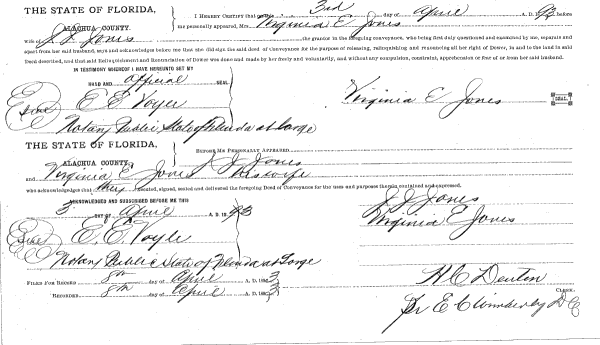 THE STATE OF FLORIDA,
ALACHUA COUNTY.
I HEREBY CERTIFY that on the 3rd day of April A. D. 1893 before
me personally appeared, Mrs. Virginia E. Jones
wife of J. J. Jones the grantor in the foregoing conveyance, who being first duly questioned and examined by me, separate and
apart from her said husband, says and acknowledges before me that she did sign the said deed of Conveyance for the purpose of releasing, relinquishing and renouncing all her right of Dower, in and to the land in said
Deed described, and that said Relinquishment and Renunciation of Dower was done and made by her freely and voluntarily, and without any compulsion, constraint, apprehension or fear of or from her said husband.
IN TESTIMONY WHEREOF I HAVE HEREUNTO SET MY
HAND AND official SEAL.
Virginia E Jones SEAL.
Seal E. E. Voyle
Notary Public, State of Florida at Large
THE STATE OF FLORIDA,
ALACHUA COUNTY
BEFORE ME PERSONALLY APPEARED J. J. Jones
and Virginia E. Jones his wife
who acknowledged that they executed, signed, sealed and delivered the foregoing Deed of Conveyance for the uses and purposes therein contained and expressed.
ACKNOWLEDGED AND SUBSCRIBED BEFORE ME THIS
3 DAY OF April A. D. 1893
J. J. Jones
Virginia E. Jones
Seal E. E. Voyle
Notary Public State of Florida at Large
FILED FOR RECORD 8th day of April A. D. 1893
RECORDED 8th day of April A. D. 1893
H C Denton
CLERK.
Pr E. C Wimberly D C